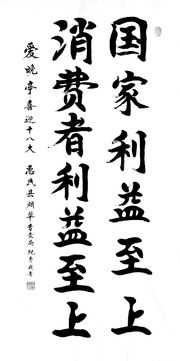 国家利益至上
消费者利益至上
爱晚亭喜迎十八大